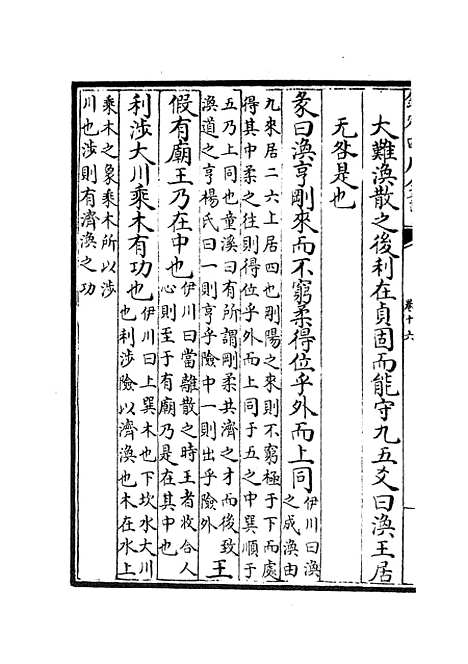 大難渙散之後利在貞固而能守九五爻曰渙王居
无咎是也
彖曰渙亨剛來而不窮柔得位乎外而上同伊川曰渙之成渙由
九來居二六上居四也剛陽之來則不窮極于下而處
得其中柔之往則得位乎外而上同于五之中巽順于
五乃上同也童溪曰有所謂剛柔共濟之才而後致
渙道之亨楊氏曰一則亨乎險中一則出乎險外王
假有廟王乃在中也伊川曰當離散之時王者收合人心則至于有廟乃是在其中也
利涉大川乘木有功也伊川曰上巽木也下坎水大川也利涉險以濟渙也木在水上
乘木之象乘木所以涉
川也涉則有濟渙之功
卷十六